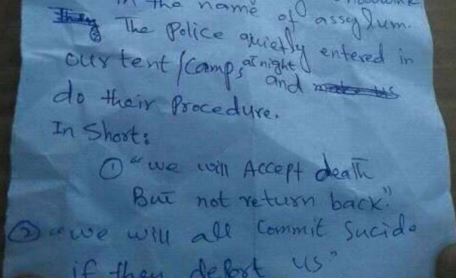 in the name of assylum.
The Police quietly entered in
our tent/camps at night and
do their Procedure.
In Short:
① "we will Accept death
But not return back."
② "we will all Commit Sucide
if they deport us"